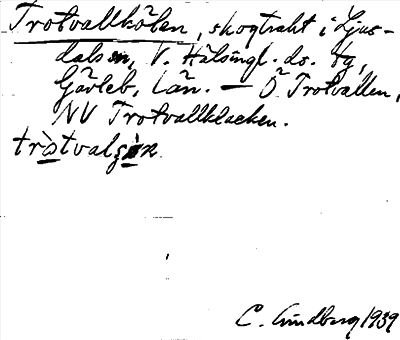 Trotvallkölen, skogtrakt i Ljus-
dals sn, V. Hälsingl. ds. dg,
Gävleb. län. — Ö Trotvallen,
NV Trotvallklacken.
tròtvalçön
C. Lindberg 1939